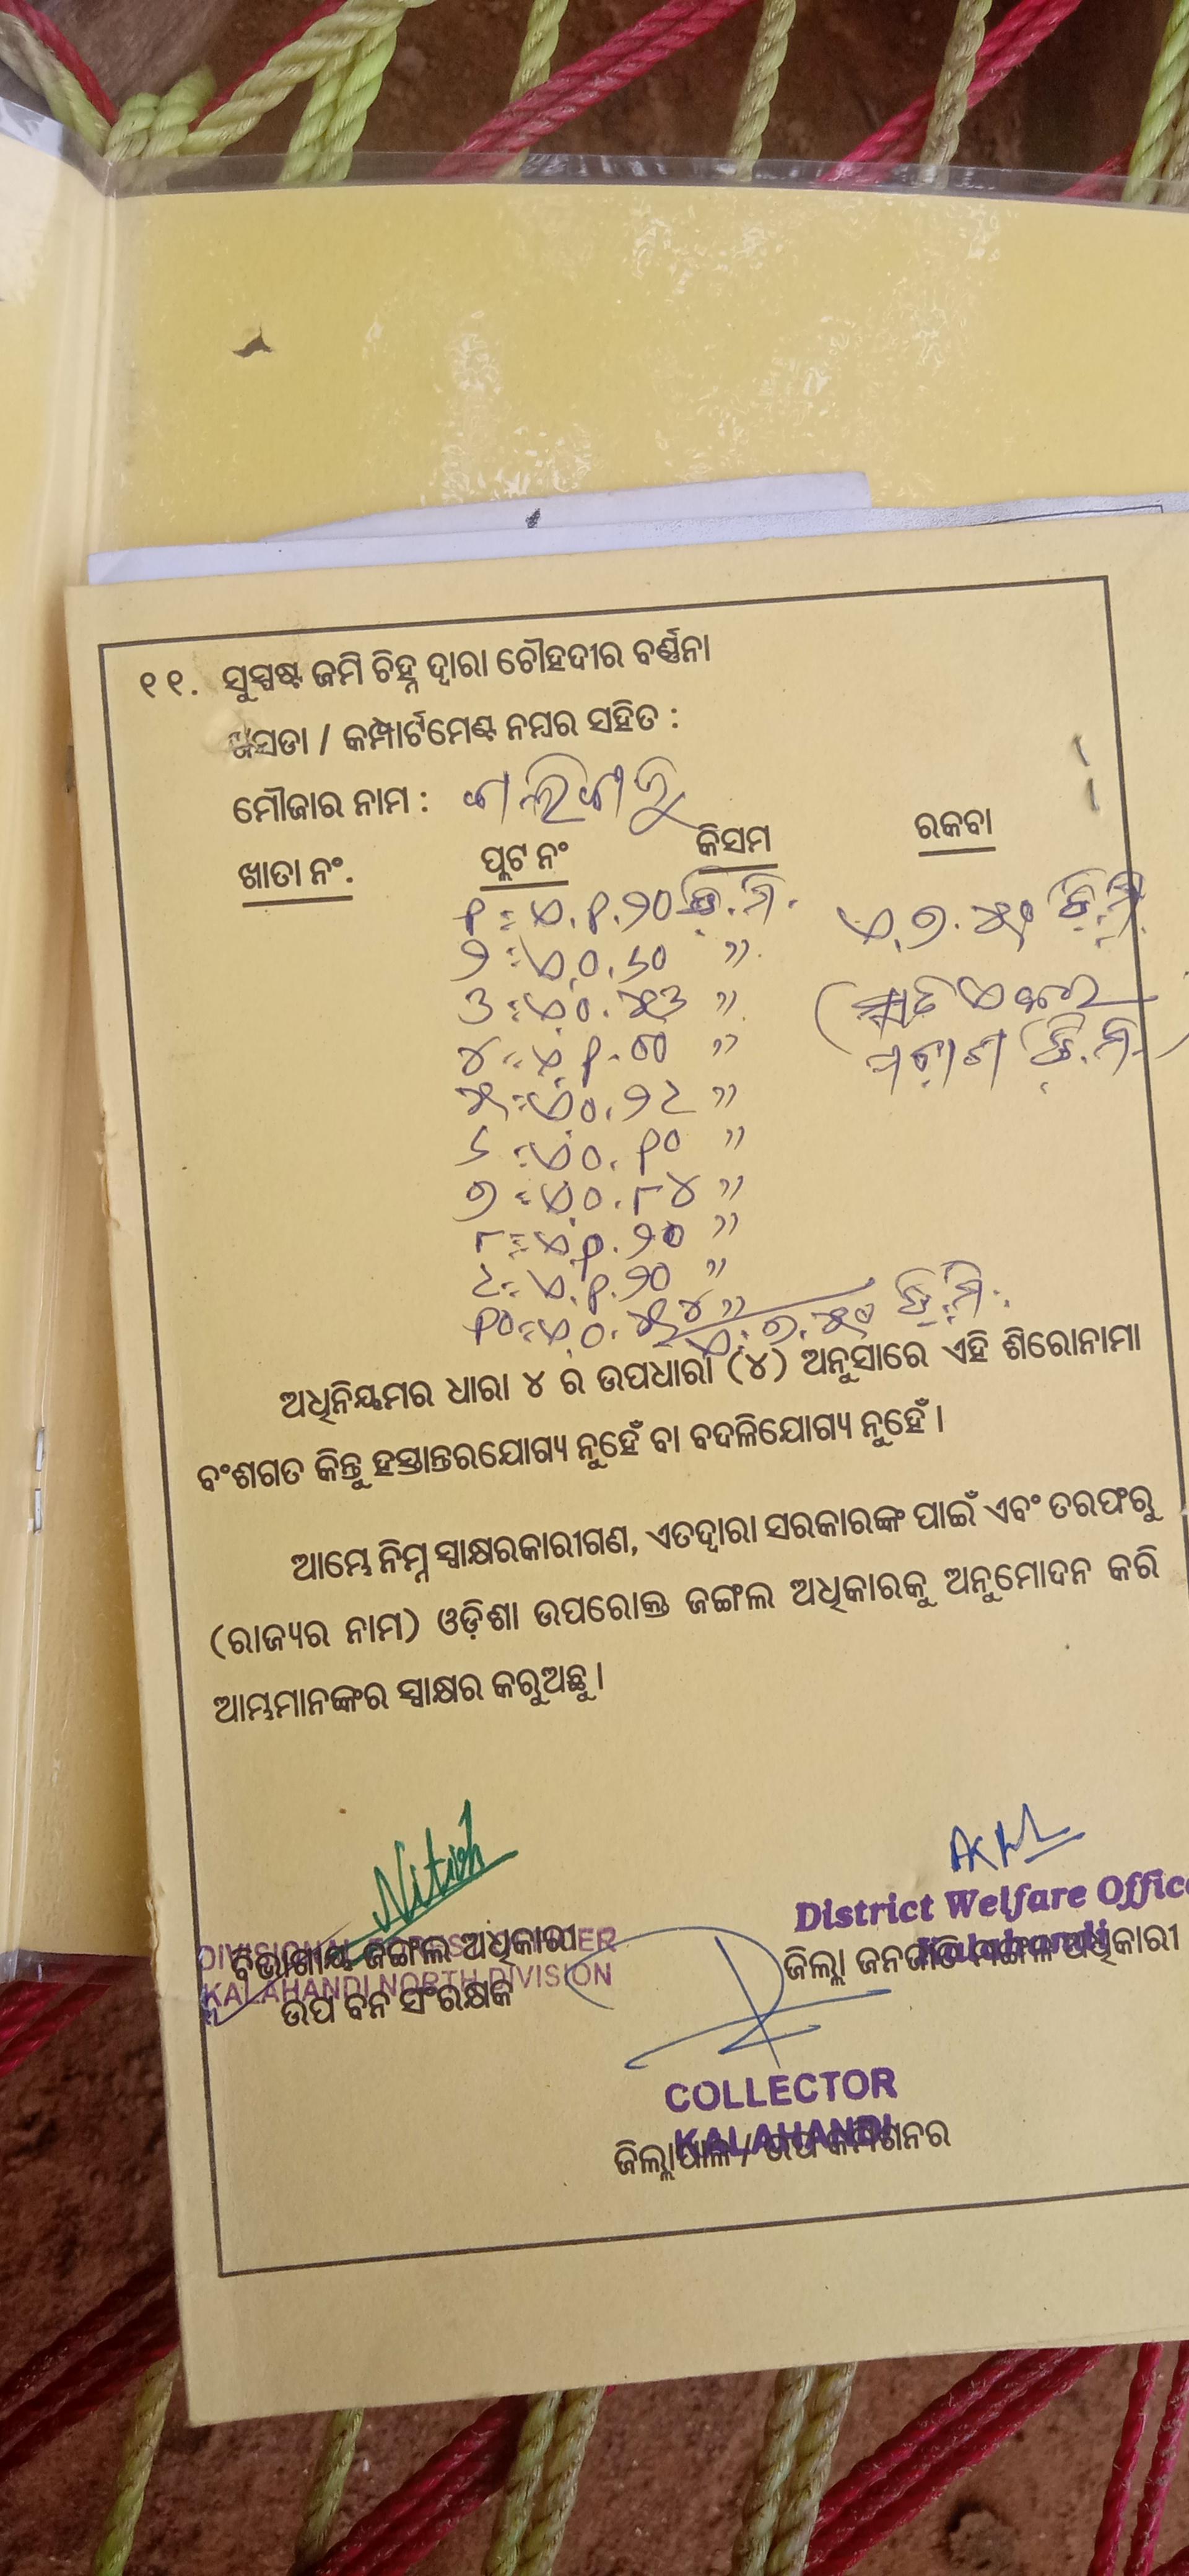 ୧୧. ସୁସ୍ପଷ୍ଟ ଜମି ଚିହ୍ନ ଦ୍ଵାରା ଚୌହଦୀର ବର୍ଣ୍ଣନା
ଖସଡା / କମ୍ପାର୍ଟମେଣ୍ଟ ନମ୍ବର ସହିତ :
ମୌଜାର ନାମ :
ଖାତା ନଂ. ପ୍ଲଟ ନଂ କିସମ ରକବା
୧ = ଏ.୧.୨୦ ଡି.ମି. ଏ.୭.୫୦ ଡି.ମି
୨ = ଏ.୦.୬୦ "
୩ = ଏ.୦.୫୩ " (ସାତ ଏକର
୪ = ଏ.୧.୦୦ " ପଚାଶ ଡି.ମି.)
୫ = ଏ.୦.୨୯ "
୬ = ଏ.୦.୧୦ "
୭ = ଏ.୦.୮୪ "
୮ = ଏ.୧.୨୦ "
୯ = ଏ.୧.୨୦ "
୧୦ = ଏ.୦.୫୪ "
ଏ.୭.୫୦ ଡି.ମି.
ଅଧିନିୟମର ଧାରା ୪ ର ଉପଧାରା (୪) ଅନୁସାରେ ଏହି ଶିରୋନାମା
ବଂଶଗତ କିନ୍ତୁ ହସ୍ତାନ୍ତରଯୋଗ୍ୟ ନୁହେଁ ବା ବଦଳିଯୋଗ୍ୟ ନୁହେଁ ।
ଆମ୍ଭେ ନିମ୍ନ ସ୍ଵାକ୍ଷରକାରୀଗଣ, ଏତଦ୍ଵାରା ସରକାରଙ୍କ ପାଇଁ ଏବଂ ତରଫରୁ
(ରାଜ୍ୟର ନାମ) ଓଡ଼ିଶା ଉପରୋକ୍ତ ଜଙ୍ଗଲ ଅଧିକାରକୁ ଅନୁମୋଦନ କରି
ଆମ୍ଭମାନଙ୍କର ସ୍ଵାକ୍ଷର କରୁଅଛୁ ।
Nitish
District Welfare Office
DIVISIONAL FOREST OFFICER
ବିଭାଗୀୟ ଜଙ୍ଗଲ ଅଧିକାରୀ
ଜିଲ୍ଲା ଜନଜାତି ମଙ୍ଗଳ ଅଧିକାରୀ
Kalahandi
KALAHANDI NORTH DIVISION
ଉପ ବନ ସଂରକ୍ଷକ
COLLECTOR
KALAHANDI
ଜିଲ୍ଲାପାଳ / ଉପ କମିଶନର